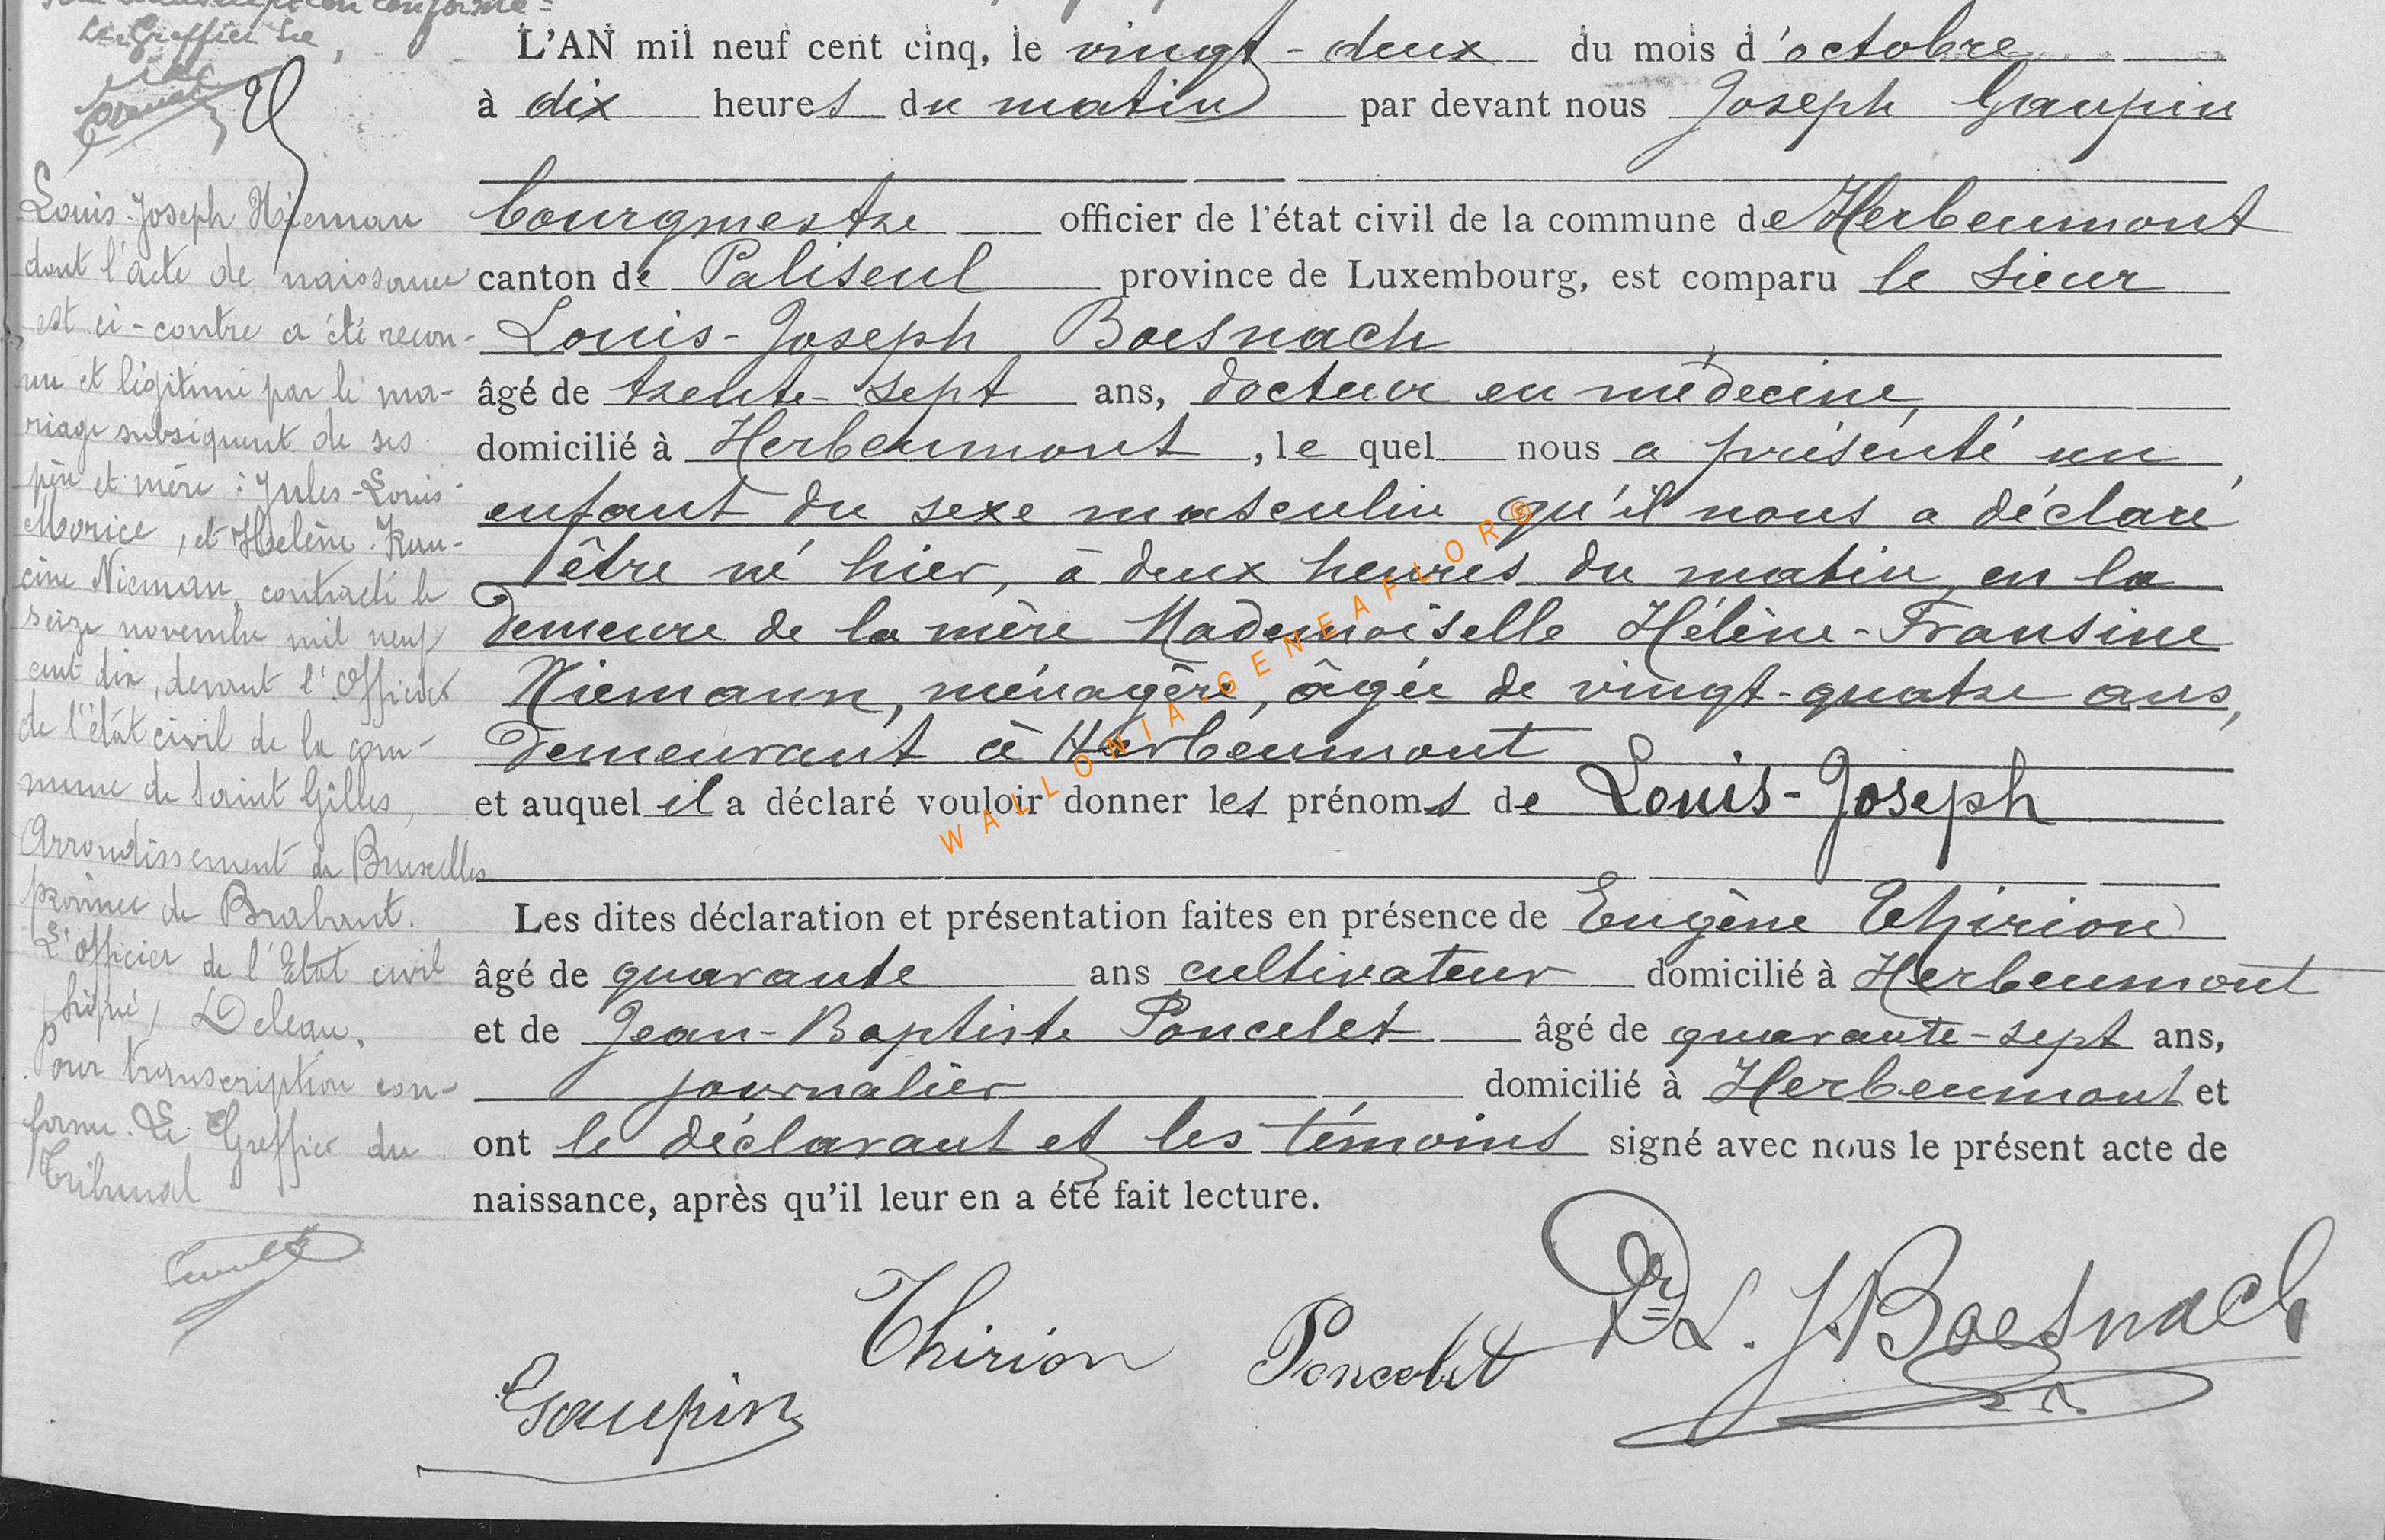 conforme.
Le Greffier
L'AN mil neuf cent cinq, le vingt-deux du mois d'octobre
à dix heures du matin par devant nous Joseph Gaupin
bourgmestre officier de l'état civil de la commune de Herbeumont
canton de Paliseul province de Luxembourg, est comparu le sieur
Louis-Joseph Boesnach
âgé de trente-sept ans, docteur en médecine,
domicilié à Herbeumont, le quel nous a présenté un
enfant du sexe masculin qu'il nous a déclaré
être né hier, à deux heures du matin, en la
demeure de la mère Mademoiselle Hélène-Fransine
Niemann, ménagère, âgée de vingt-quatre ans,
demeurant à Herbeumont
et auquel il a déclaré vouloir donner les prénoms de Louis-Joseph
Les dites déclaration et présentation faites en présence de Eugène Thirion
âgé de quarante ans cultivateur domicilié à Herbeumont
et de Jean-Baptiste Poncelet âgé de quarante-sept ans,
journalier domicilié à Herbeumont et
ont le déclarant et les témoins signé avec nous le présent acte de
naissance, après qu'il leur en a été fait lecture.
Louis-Joseph Nieman
dont l'acte de naissance
est ci-contre a été recon-
nu et légitimé par le ma-
riage subséquent de ses
père et mère : Jules-Louis-
Morice, et Helène-Fran-
cine Nieman, contracté le
seize novembre mil neuf
cent dix, devant l'Officier
de l'état civil de la com-
mune de Saint Gilles,
Arrondissement de Bruxelles
province de Brabant.
L'officier de l'Etat civil
(signé) Deleau.
Pour transcription con-
forme. Le Greffier du
Tribunal
Gaupin
Thirion
Poncelet
Dr L. J. Boesnach
WALLONIALGENEAFLOR®